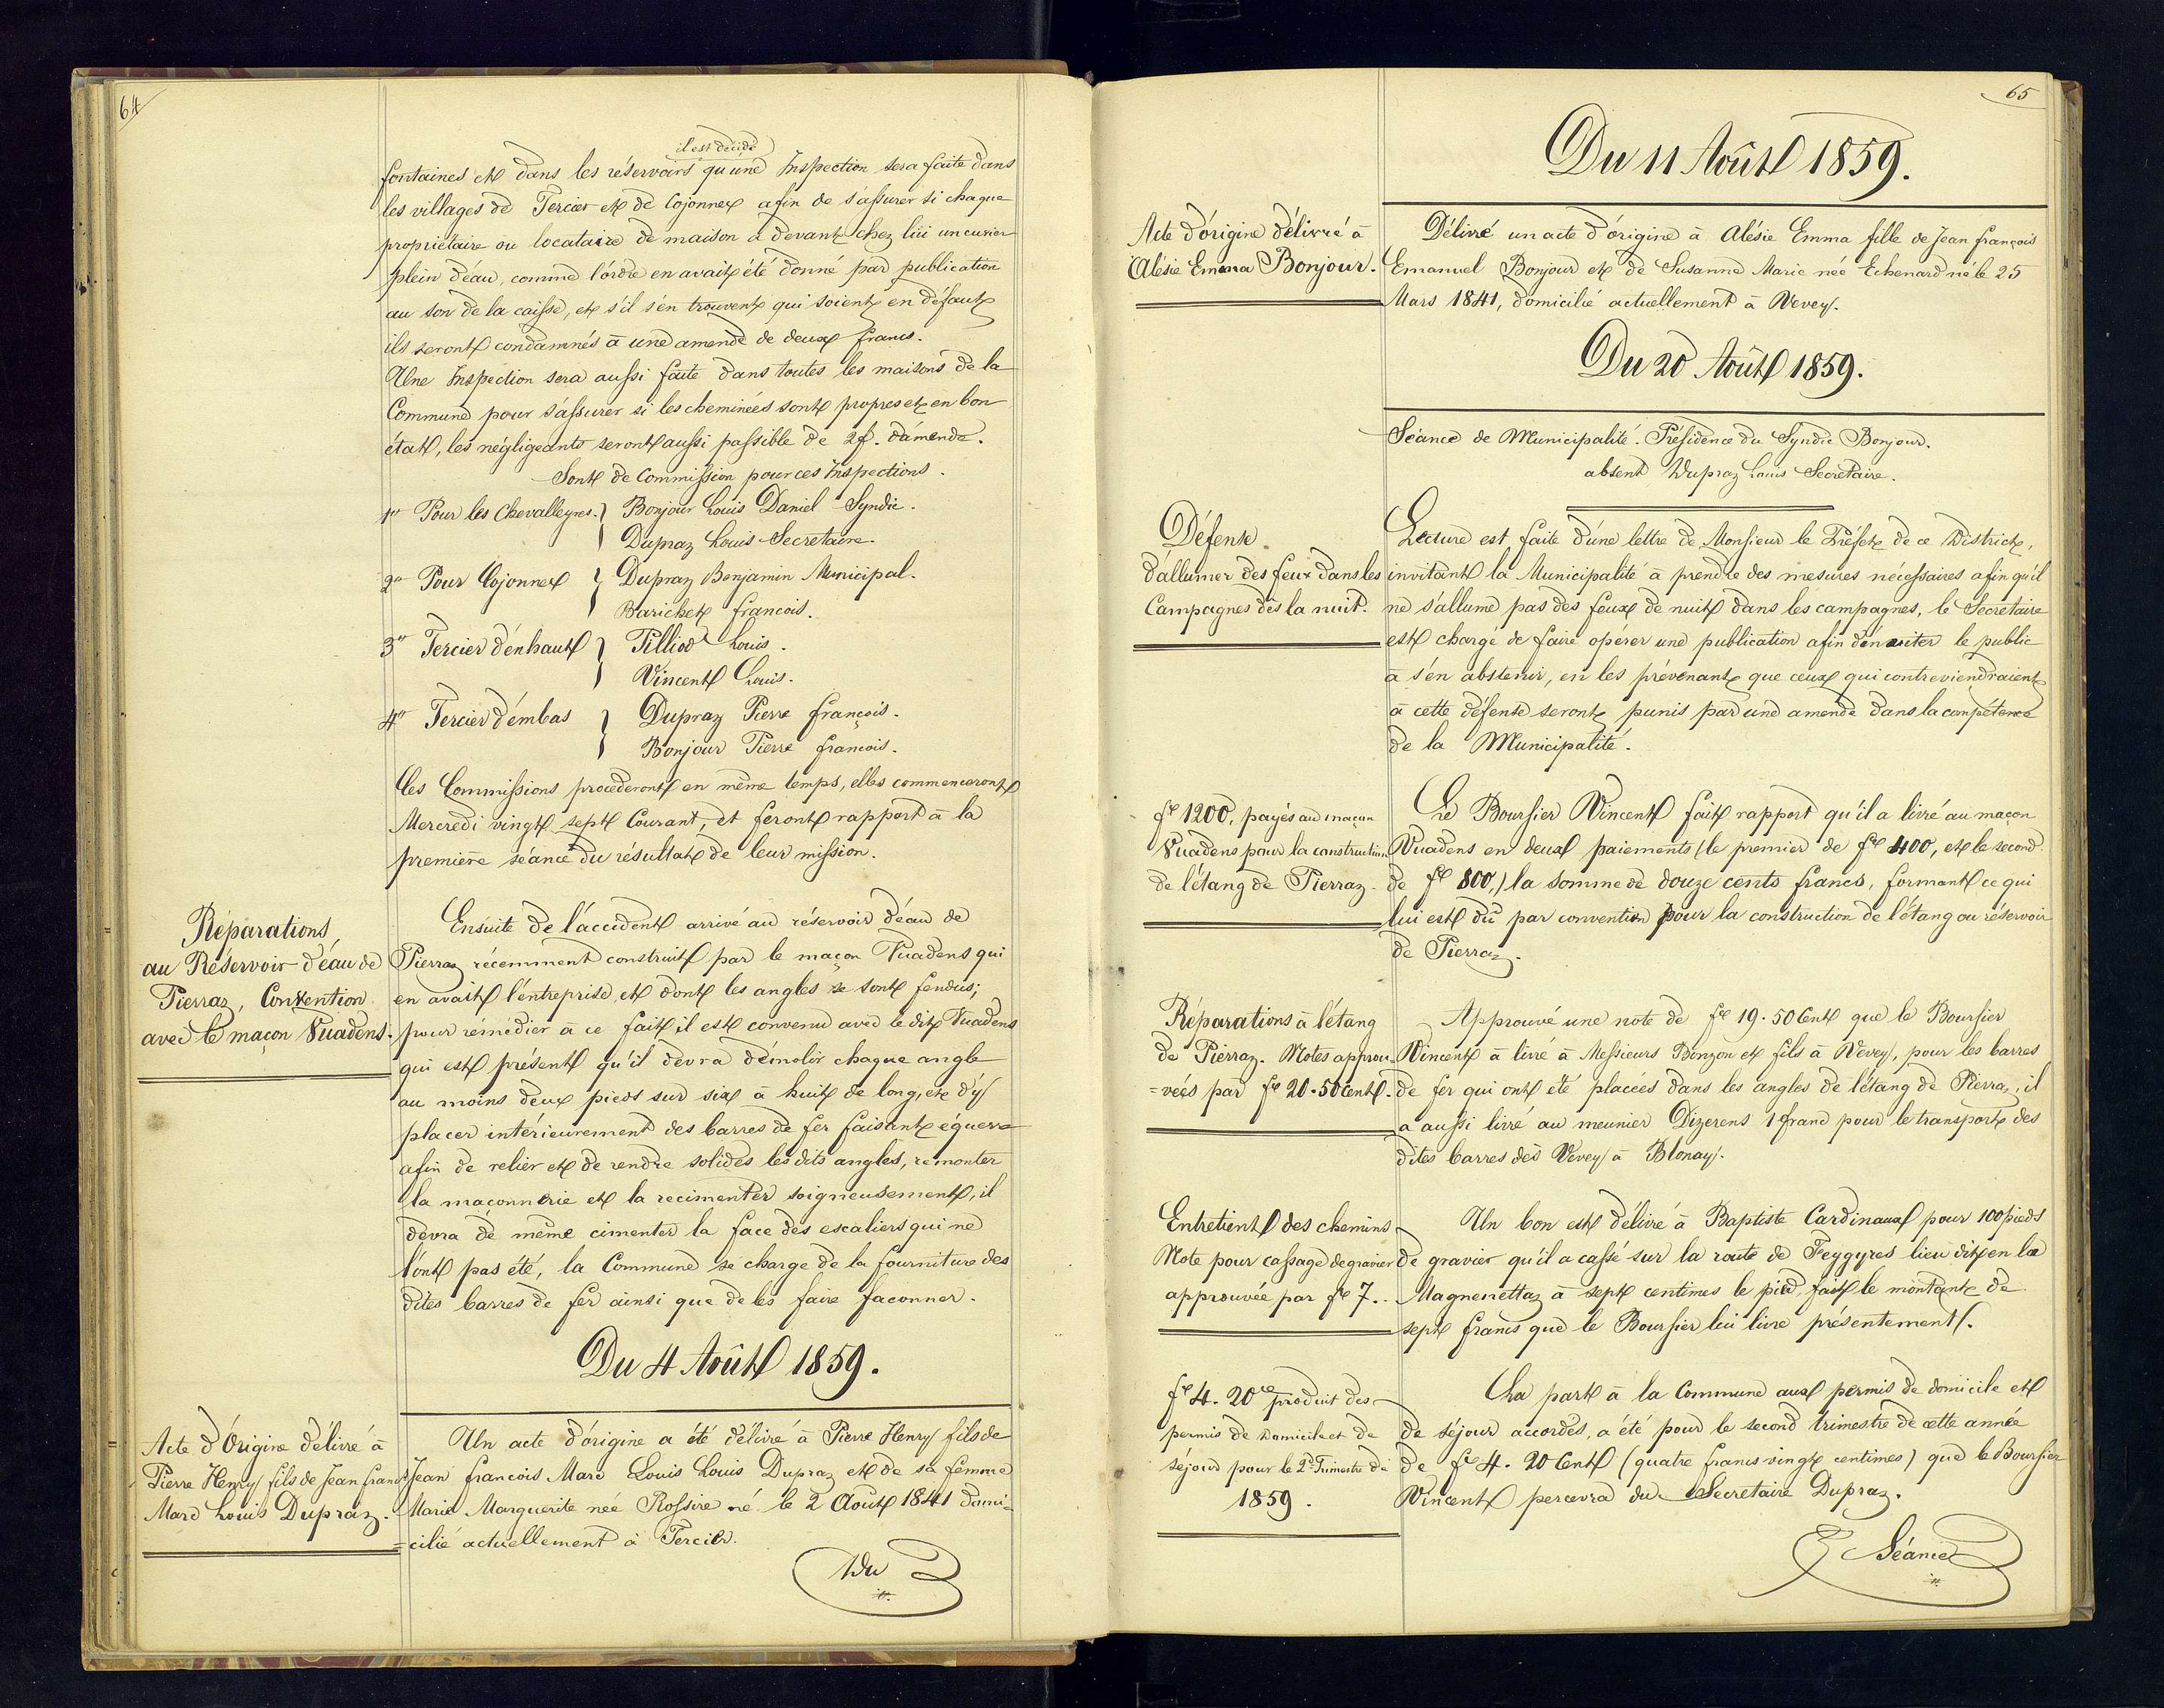 64
il est décidé
fontaines et dans les réservoirs qu'une Inspection sera faite dans
les villages de Tercier et de Cojonnex afin de s'assurer si chaque
propriétaire ou locataire de maison a devant chez lui un cuvier
plein d'éau, comme l'ordre en avait été donné par publication
au son de la caisse, et s'il s'en trouvent qui soient en défaut
ils seront condamnés à une amende de deux francs.
Une Inspection sera aussi faite dans toutes les maisons de la
Commune pour s'assurer si les cheminées sont propres et en bon
état, les négligeants seront aussi passible de 2f. d'amende.
Sont de Commission pour ces Inspections.
1o Pour les Chevalleyres. } Bonjour Louis Daniel Syndic.
Dupraz Louis Secretaire.
2o Pour Cojonnex } Dupraz Benjamin Municipal.
Barichet francois.
3o Tercier d'enhaut } Pilliod Louis.
Vincent Louis.
4o Tercier d'embas } Dupraz Pierre françois.
Bonjour Pierre francois.
Ces Commissions procéderont en même temps, elles commenceront
Mercredi vingt sept Courant, et feront rapport à la
première séance du résultat de leur mission.
Réparations
au Réservoir d'éau de
Pierraz, Convention
avec le maçon Vuadens.
Ensuite de l'accident arrivé au réservoir d'éau de
Pierraz récemment construit par le maçon Vuadens qui
en avait l'entreprise et dont les angles se sont fendus;
pour rémédier à ce fait il est convenu avec le dit Vuadens
qui est présent qu'il devra démolir chaque angle
au moins deux pieds sur six à huit de long, et d'y
placer intérieurement des barres de fer faisant équerre
afin de relier et de rendre solides les dits angles, remonter
la maçonnerie et la recimenter soigneusement, il
devra de même cimenter la face des escaliers qui ne
l'ont pas été, la Commune se charge de la fourniture des
dites barres de fer ainsi que de les faire façonner.
Du 4 Août 1859.
Acte d'Origine délivré à
Pierre Henry fils de Jean franc
Marc Louis Dupraz.
Un acte d'origine a été délivré à Pierre Henry fils de
Jean francois Marc Louis Louis Dupraz et de sa femme
Marie Marguerite née Rossire né le 2 Août 1841 domi-
=cilié actuellement à Tercier.
Du
65
Du 11 Août 1859.
Acte d'origine délivré à
Alésie Emma Bonjour.
Délivré un acte d'origine à Alésie Emma fille de Jean françois
Emanuel Bonjour et de Susanne Marie née Echenard né le 25
Mars 1841, domicilié actuellement à Vevey.
Du 20 Août 1859.
Séance de Municipalité. Présidence du Syndic Bonjour.
absent Dupraz Louis Secrétaire.
Défense
d'allumer des feux dans les
Campagnes dès la nuit.
Lecture est faite d'une lettre de Monsieur le Préfet de ce District,
invitant la Municipalité à prendre des mesures nécessaires afin qu'il
ne s'allume pas des feux de nuit dans les campagnes, le Secrétaire
est chargé de faire opérer une publication afin d'inviter le public
à s'en abstenir, en les prévenant que ceux qui contreviendraient
à cette défense seront punis par une amende dans la compétence
de la Municipalité.
fs 1200, payés au maçon
Vuadens pour la construction
de l'étang de Pierraz.
Le Boursier Vincent fait rapport qu'il a livré au maçon
Vuadens en deux paiements (le premier de fs 400, et le second
de fs 800,) la somme de douze cents francs, formant ce qui
lui est dû par convention pour la construction de l'étang ou réservoir
de Pierraz.
Réparations à l'étang
de Pierraz. Notes approu-
=vées par fs 20.50 Cent.
Approuvé une note de fs 19.50 Cent que le Boursier
Vincent à livré à Messieurs Bonzon et fils à Vevey, pour les barres
de fer qui ont été placées dans les angles de l'étang de Pierraz, il
a aussi livré au meunier Dizerens 1 franc pour le transport des
dites barres dès Vevey à Blonay.
Entretient des chemins
Note pour cassage de gravier
approuvée par fs 7..
Un bon est délivré à Baptiste Cardinaux pour 100 pieds
de gravier qu'il a cassé sur la route de Feygyres lieu dit en la
Magnenettaz à sept centimes le pied, fait le montant de
sept francs que le Boursier lui livre présentement.
fs 4. 20ce produit des
permis de Domicile et de
séjour pour le 2d Trimestre de
1859.
La part à la Commune aux permis de domicile et
de séjour accordés, a été pour le second trimestre de cette année
de fs 4. 20 Cent (quatre francs vingt centimes) que le Boursier
Vincent percevra du Secretaire Dupraz.
Séance